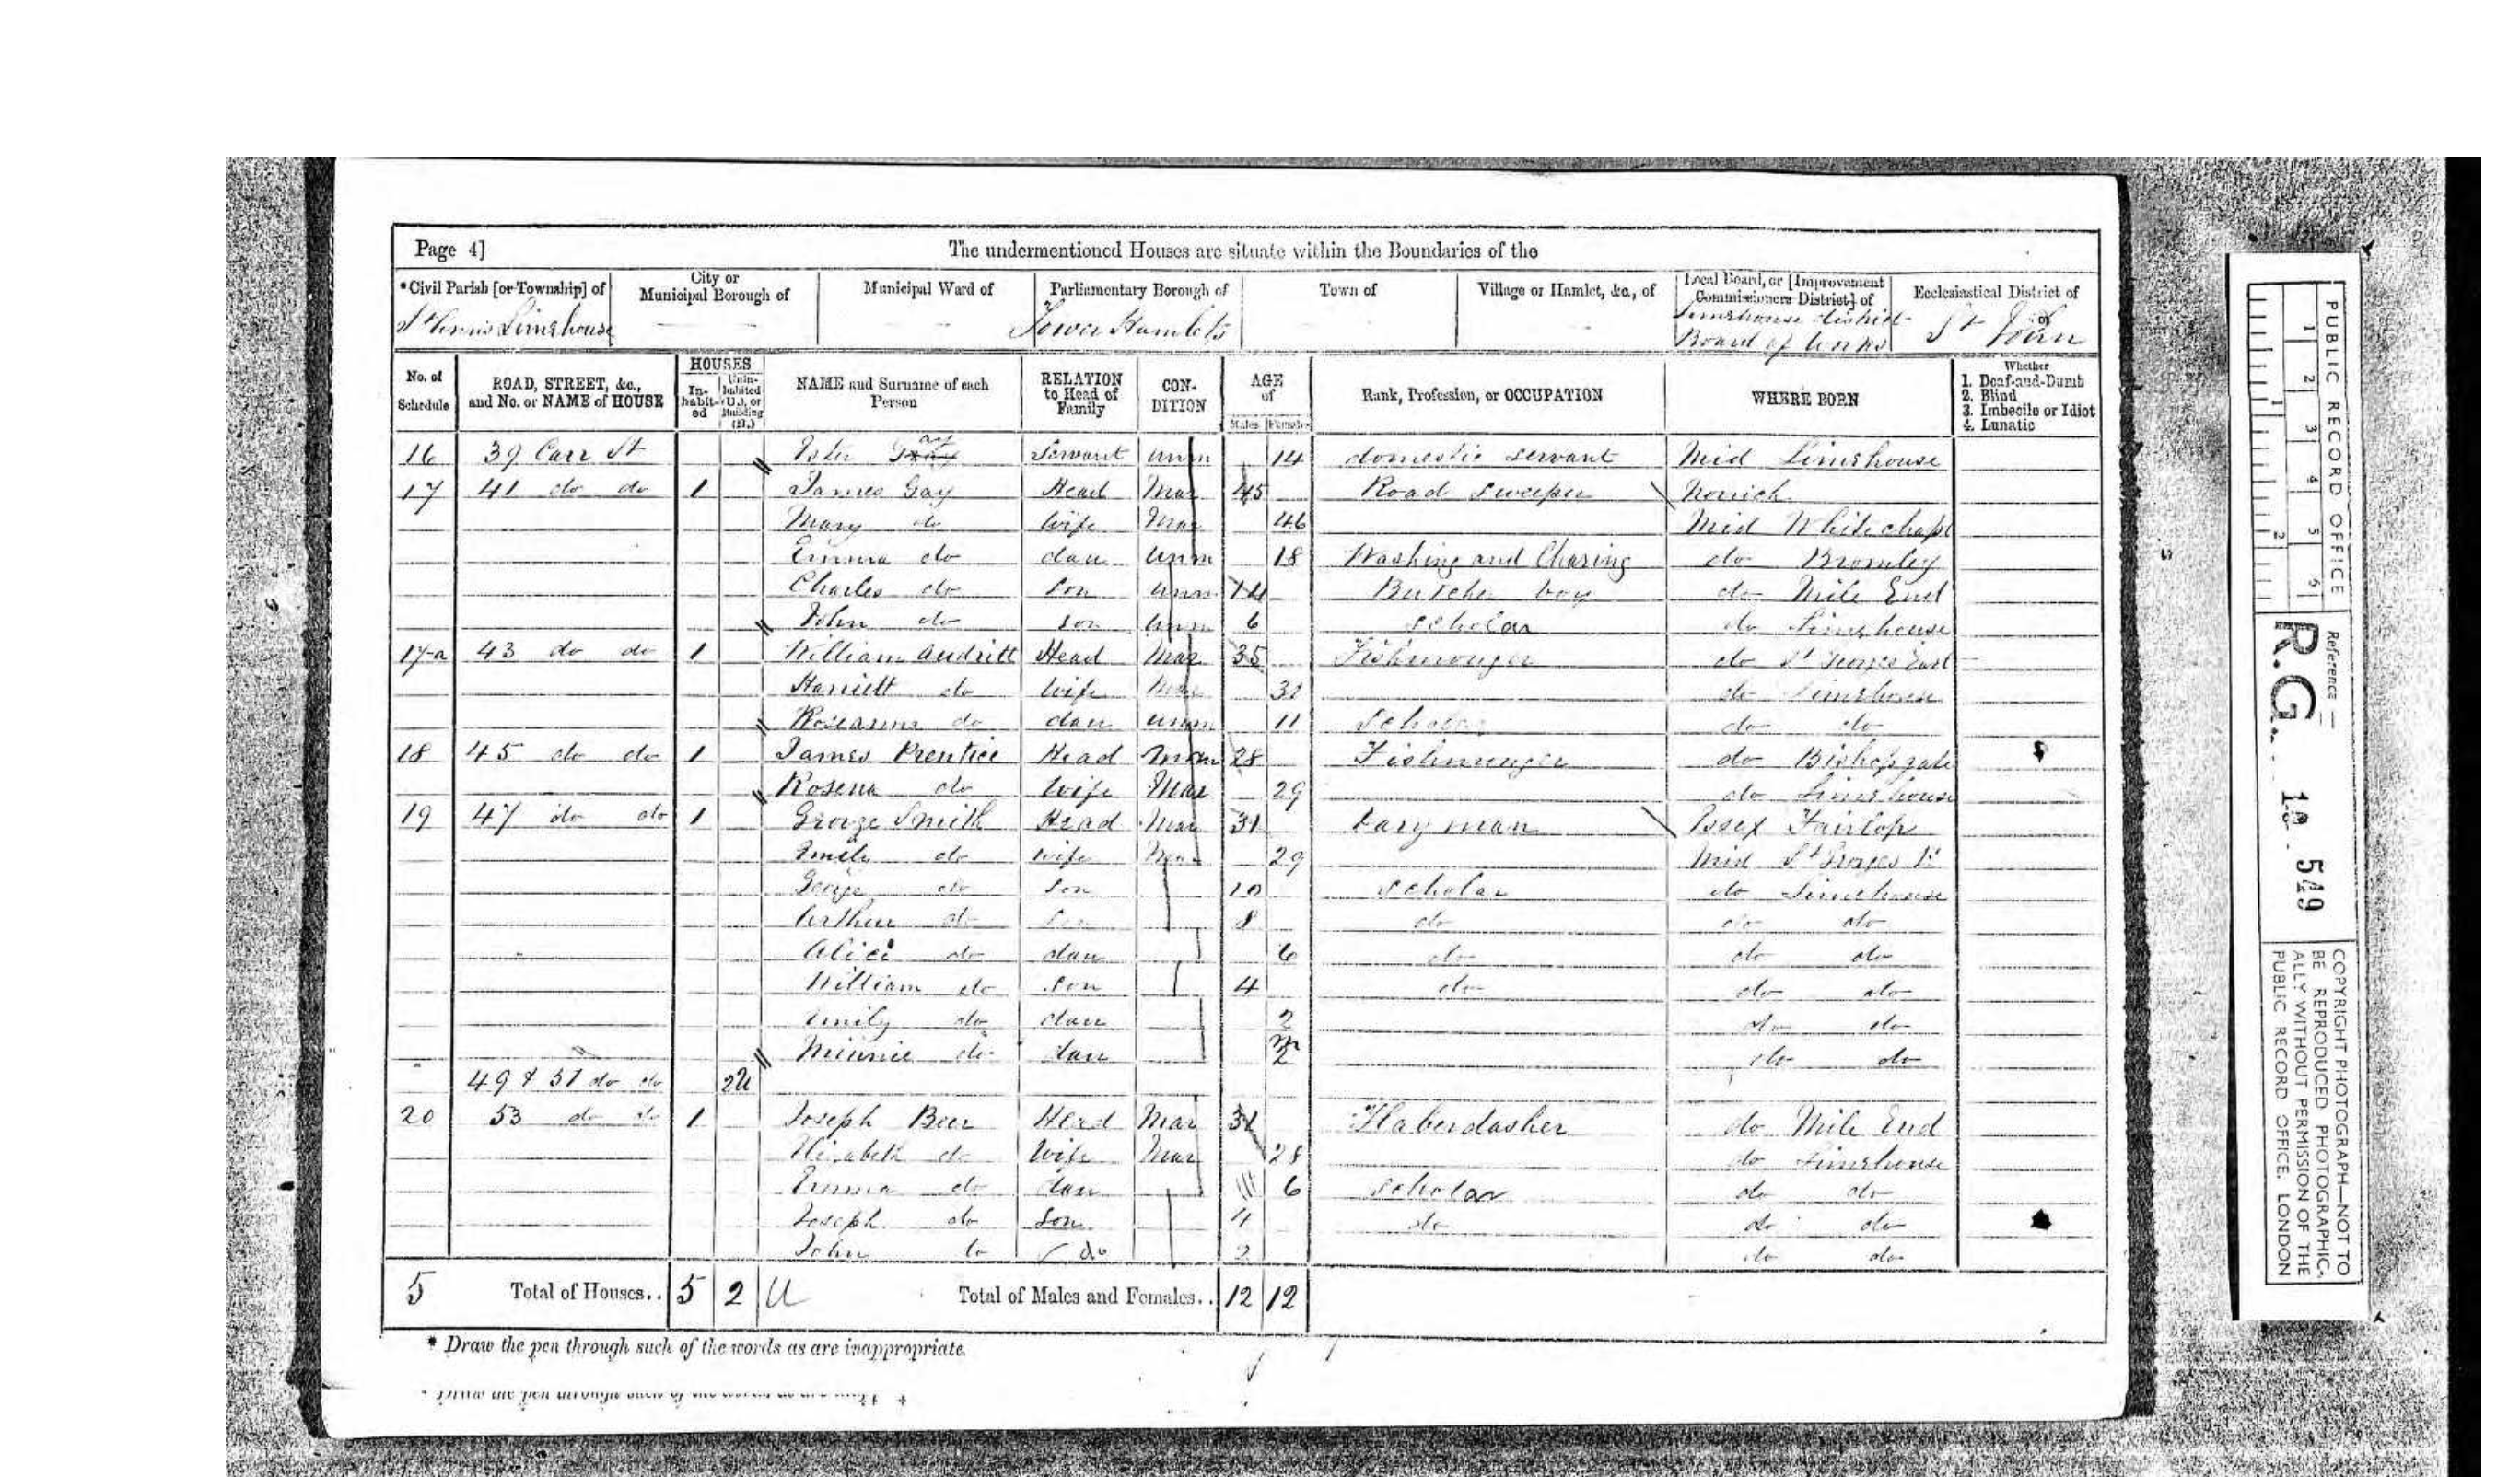 Page 4]
The undermentioned Houses are situate within the Boundaries of the
*Civil Parish [or Township] of
City or Municipal Borough of
Municipal Ward of
Parliamentary Borough of
Town of
Village or Hamlet, &c., of
Local Board, or [Improvement Commissioners District] of
Ecclesiastical District of
Limehouse
Tower Hamlets
Limehouse district Board of Works
St John
No. of Schedule
ROAD, STREET, &c., and No. or NAME of HOUSE
HOUSES
In-habit-ed
Unin-habited (U.), or Building (B.)
NAME and Surname of each Person
RELATION to Head of Family
CON-DITION
AGE of
Males
Females
Rank, Profession, or OCCUPATION
WHERE BORN
Whether
1. Deaf-and-Dumb
2. Blind
3. Imbecile or Idiot
4. Lunatic
16 39 Carr St Servant unm 14 domestic servant Mid Limehouse
17 41 do do 1 James Gay Head Mar 45 Road Sweeper
Mary do wife Mar 46 Mid Whitechapl
Emma do dau unm 18 Washing and Charing do Bromley
Charles do Son unm 14 Butcher boy do Mile End
John do son unm 6 scholar do Limehouse
17a 43 do do 1 William Audritt Head Mar 35 Fishmonger do
Harriett do wife Mar do Limehouse
Roseanna do dau unm 11 Scholar do do
18 45 do do 1 James Prentice Head 28 Fishmonger do Bishopgate
Rosena do wife Mar 29 do Limehouse
19 47 do do 1 George Smith Head Mar 31 Essex Fairlop
Emily do wife Mar 29 Mid
George do Son 10 scholar do Limehouse
Arthur do Son 8 do do do
Alice do dau 6 do do do
William do Son 4 do do do
Emily do dau 2 do do
Minnie do dau do do
49 & 51 do do 2U
20 53 do do 1 Joseph Beer Head Mar 31 Haberdasher do Mile End
Elizabeth do Wife Mar 28 do Limehouse
Emma do dau 6 scholar do do
Joseph do Son 4 do do do
John do do 2 do do
5 Total of Houses.. 5 2 U Total of Males and Females.. 12 12
* Draw the pen through such of the words as are inappropriate.
PUBLIC RECORD OFFICE
1 2 3 4 5 6
1 2
Reference —
R.G. 10 549
COPYRIGHT PHOTOGRAPH—NOT TO
BE REPRODUCED PHOTOGRAPHIC-
ALLY WITHOUT PERMISSION OF THE
PUBLIC RECORD OFFICE. LONDON